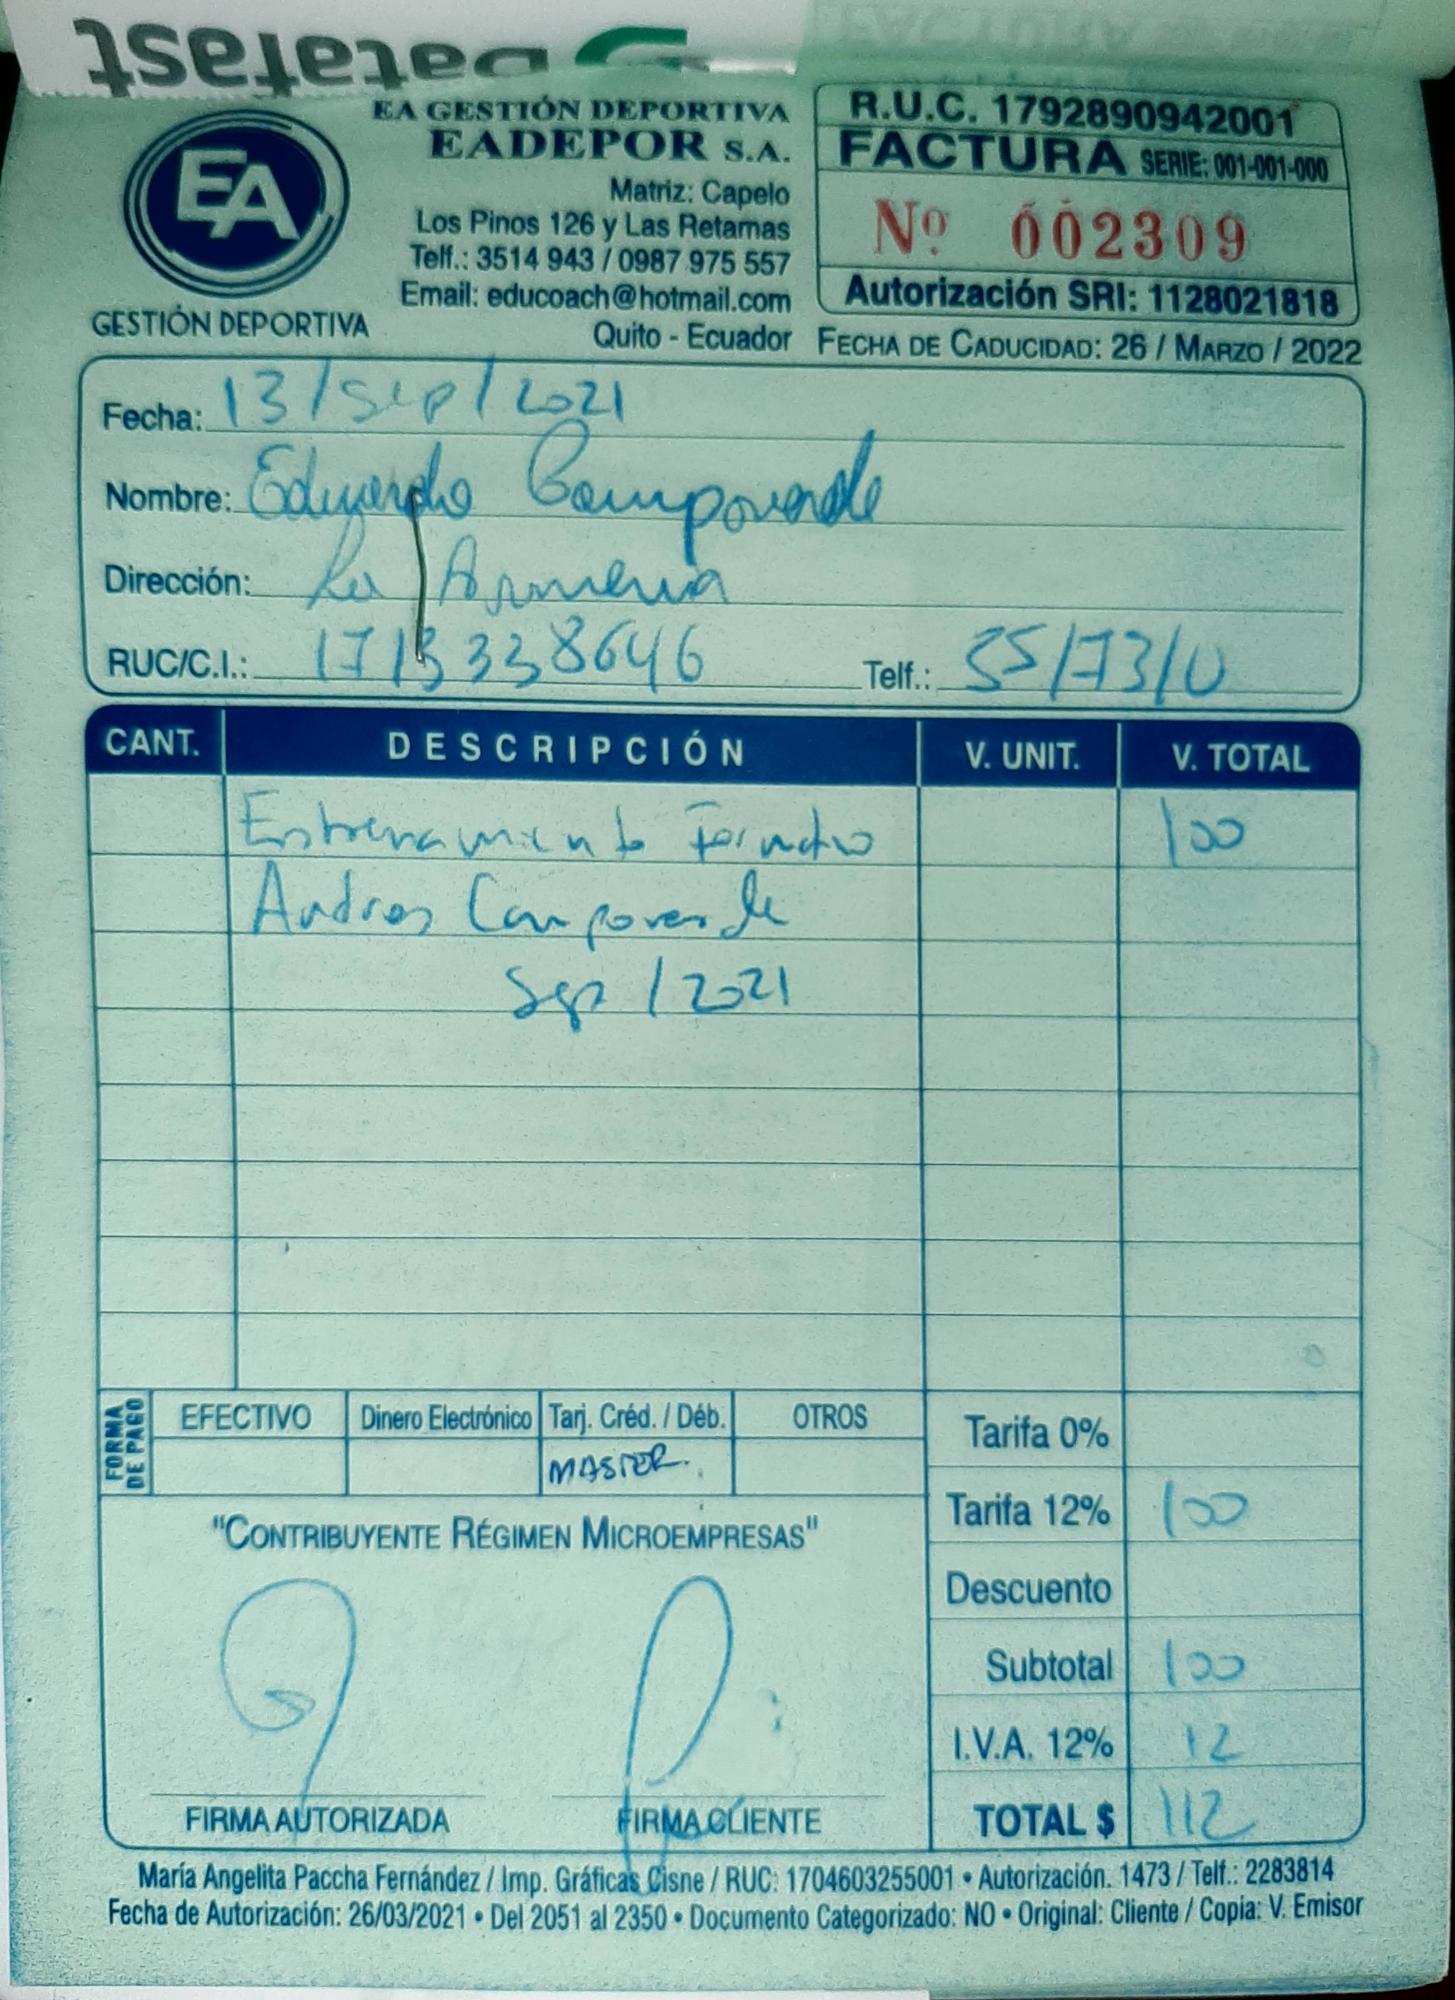 Datafast
EA
GESTIÓN DEPORTIVA
EA GESTIÓN DEPORTIVA
EADEPOR S.A.
Matriz: Capelo
Los Pinos 126 y Las Retamas
Telf.: 3514 943 / 0987 975 557
Email: educoach@hotmail.com
Quito - Ecuador
R.U.C. 1792890942001
FACTURA SERIE: 001-001-000
Nº 002309
Autorización SRI: 1128021818
FECHA DE CADUCIDAD: 26 / MARZO / 2022
Fecha: 13/Sep/2021
Nombre: Eduardo Campoverde
Dirección: La Armenia
RUC/C.I.: 1713338646 Telf.:
CANT. DESCRIPCIÓN V. UNIT. V. TOTAL
Entrenamiento 100
Andres Campoverde
Sep / 2021
FORMA DE PAGO
EFECTIVO Dinero Electrónico Tarj. Créd. / Déb. OTROS
MASTER.
"CONTRIBUYENTE RÉGIMEN MICROEMPRESAS"
Tarifa 0%
Tarifa 12% 100
Descuento
Subtotal 100
I.V.A. 12% 12
TOTAL $ 112
FIRMA AUTORIZADA FIRMA CLIENTE
María Angelita Paccha Fernández / Imp. Gráficas Cisne / RUC: 1704603255001 • Autorización. 1473 / Telf.: 2283814
Fecha de Autorización: 26/03/2021 • Del 2051 al 2350 • Documento Categorizado: NO • Original: Cliente / Copia: V. Emisor